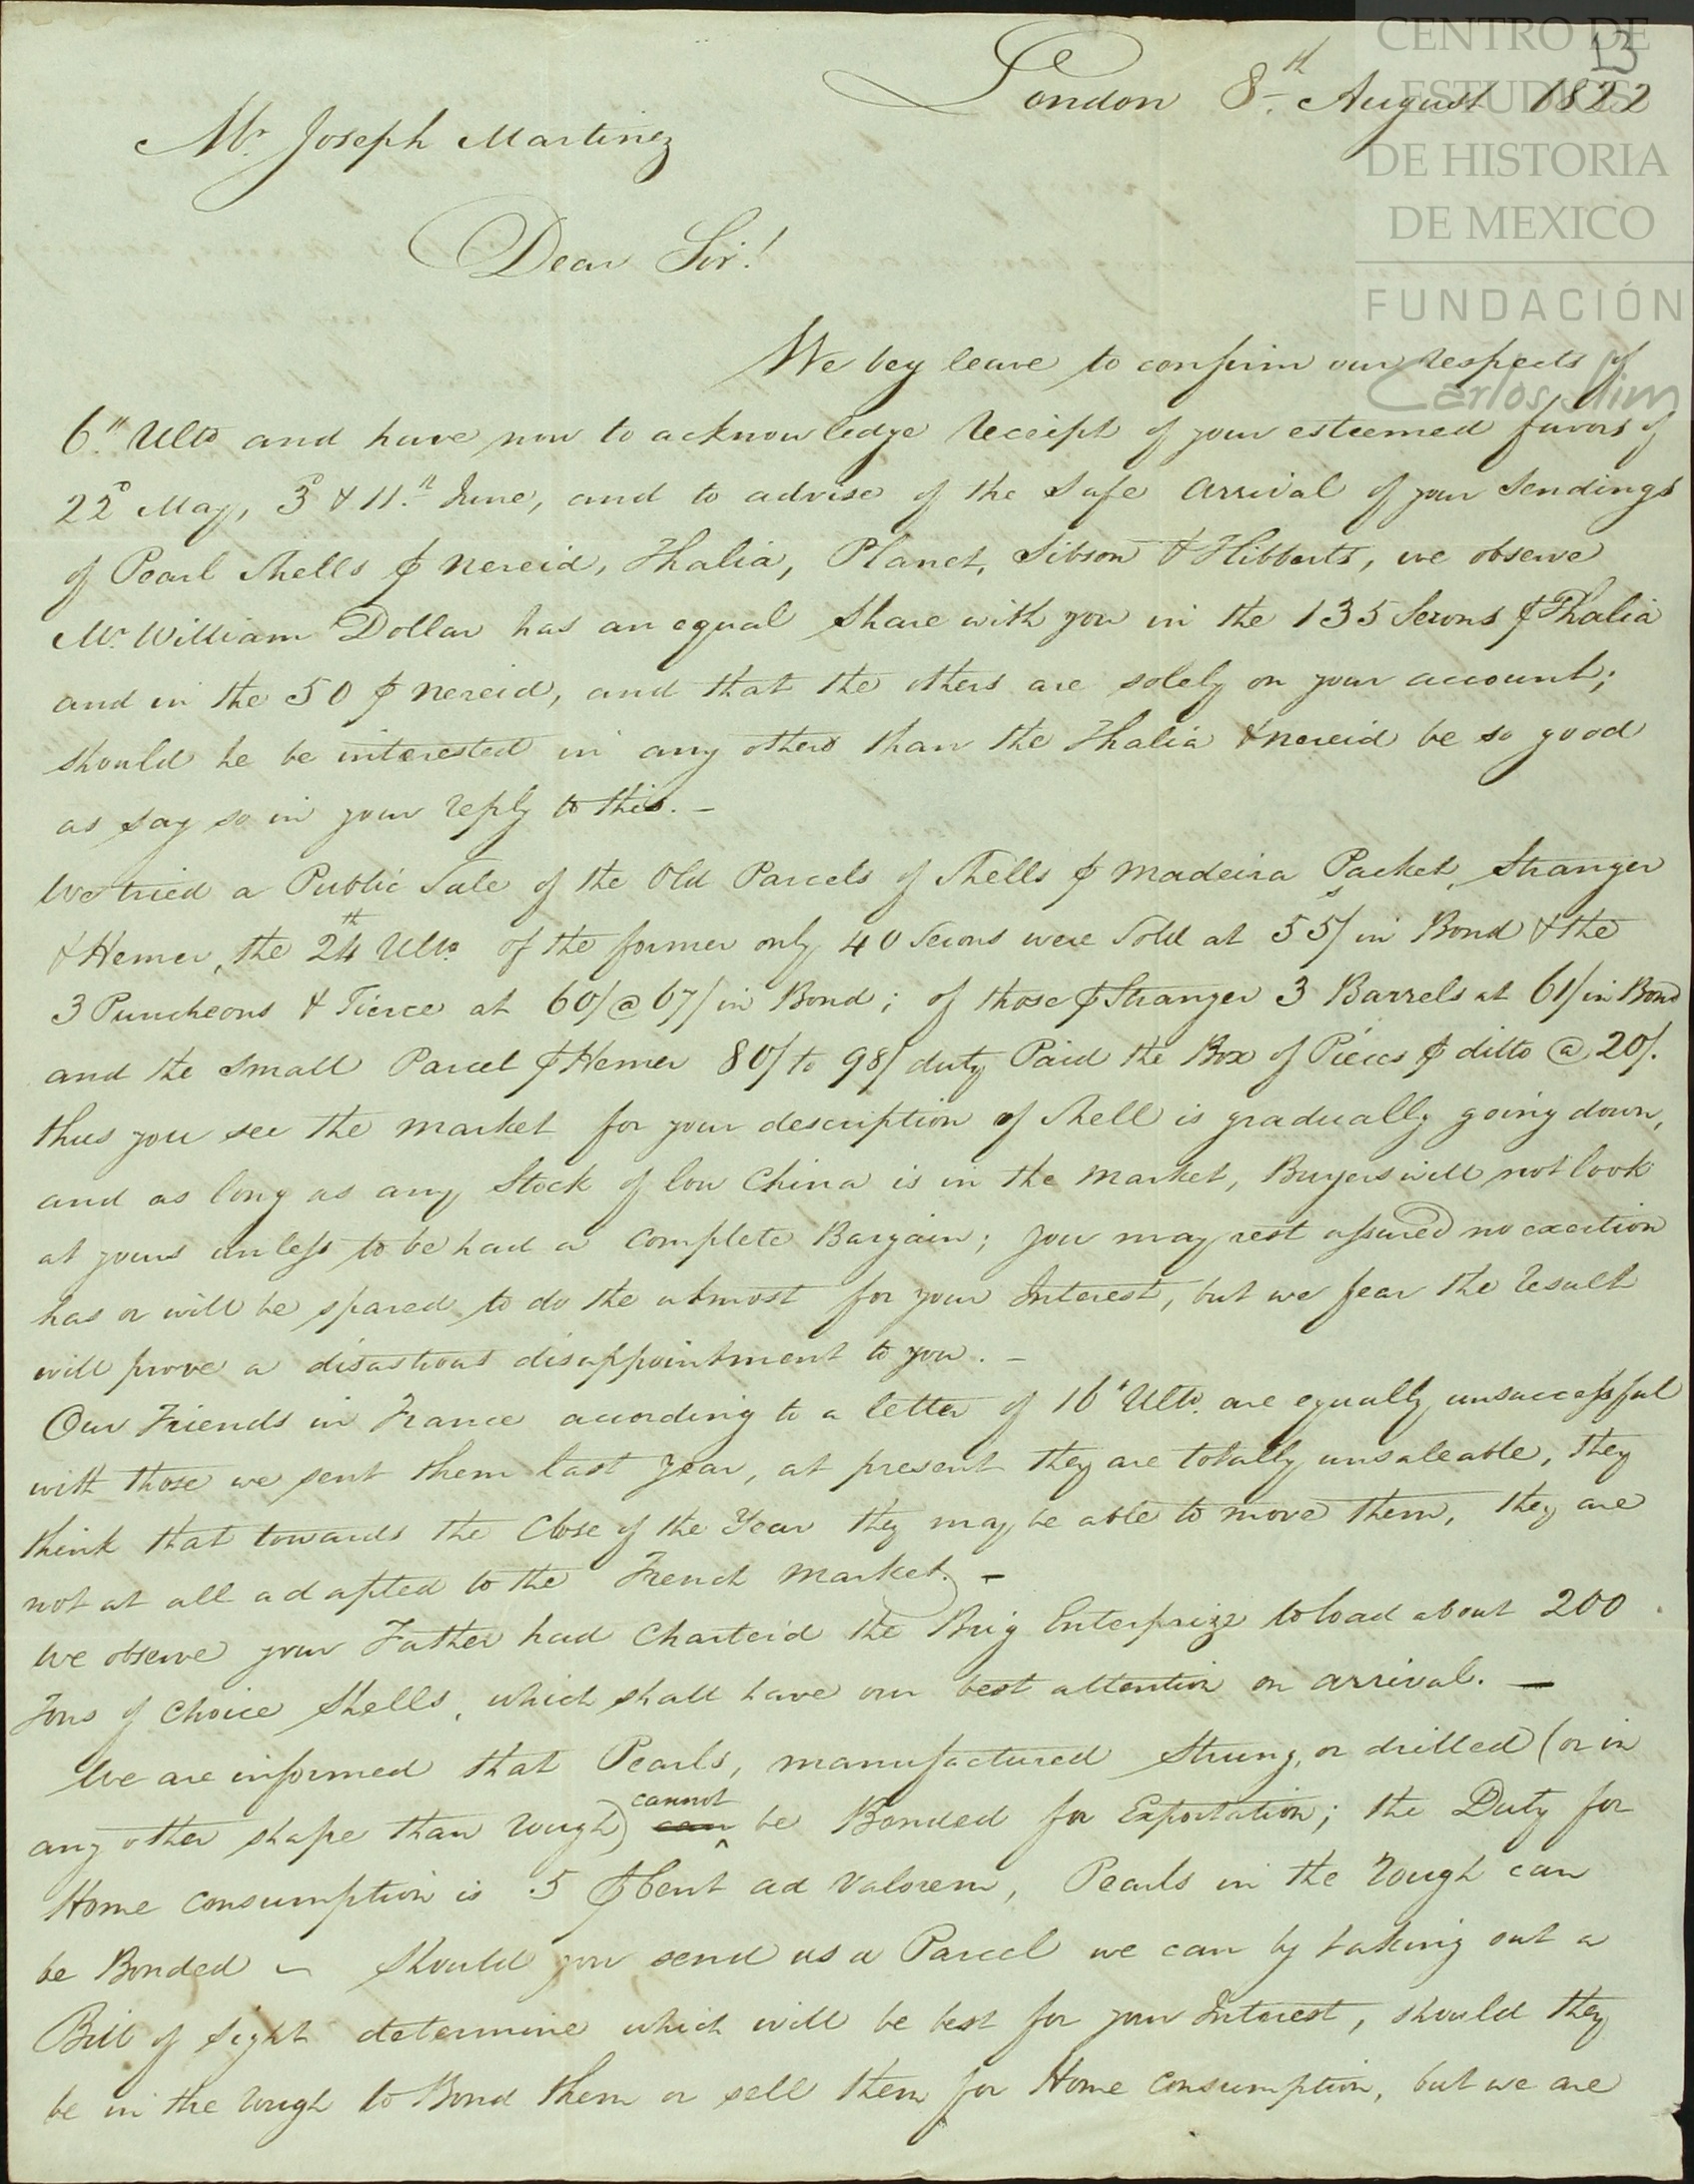 CENTRO DE
ESTUDIOS
DE HISTORIA
DE MEXICO
FUNDACIÓN
Carlos Slim
13
London 8th August 1822
Mr. Joseph Martinez
Dear Sir!
We beg leave to confirm our respects of
6th Ulto and have now to acknowledge receipt of your esteemed favors of
22d May, 3d & 11th June, and to advise of the safe arrival of your sendings
of Pearl Shells ⅌ Nereid, Thalia, Planet, Sibson & Hibberts, we observe
Mr. William Dollar has an equal share with you in the 135 Serons ⅌ Thalia
and in the 50 ⅌ Nereid, and that the others are solely on your account;
should he be interested in any others than the Thalia & Nereid be so good
as say so in your reply to this. —
We tried a Public Sale of the Old Parcels of Shells ⅌ Madeira Packet, Stranger
& Hemer, the 24th Ulto. of the former only 40 Serons were Sold at 55/ in Bond & the
3 Puncheons & Tierce at 60/ @ 67/ in Bond; of those ⅌ Stranger 3 Barrels at 61/ in Bond
and the small Parcel ⅌ Hemer 80/ to 98/ duty Paid the Box of Pieces ⅌ ditto @ 20/.
thus you see the market for your description of Shell is gradually going down,
and as long as any Stock of low China is in the Market, Buyers will not look
at yours unless to be had a complete Bargain; you may rest assured no exertion
has or will be spared to do the utmost for your Interest, but we fear the result
will prove a disastrous disappointment to you. —
Our Friends in France according to a letter of 16th Ulto. are equally unsuccessful
with those we sent them last year, at present they are totally unsaleable, they
think that towards the Close of the Year they may be able to move them, they are
not at all adapted to the French Market. —
We observe your Father had Charterd the Brig Enterprize to load about 200
Tons of choice Shells, which shall have our best attention on arrival. —
We are informed that Pearls, manufactured Strung, or drilled (or in
any other shape than rough) can cannot be Bonded for Exportation; the Duty for
Home consumption is 5 ⅌ Cent ad Valorem, Pearls in the Rough can
be Bonded — Should you send us a Parcel we can by taking out a
Bill of Sight determine which will be best for your Interest, should they
be in the rough to Bond them or sell them for Home Consumption, but we are